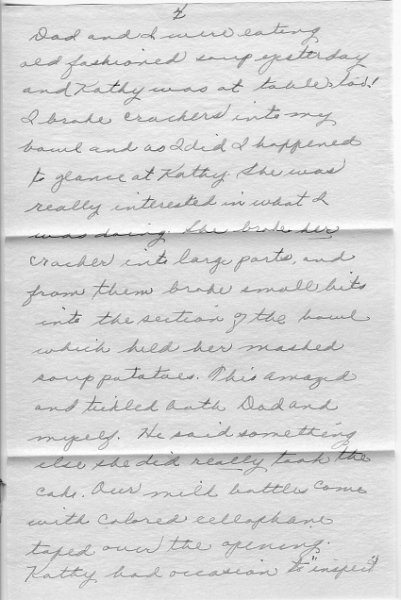 4
Dad and I were eating
old fashioned soup yesterday
and Kathy was at table too!
I broke crackers into my
bowl and as I did I happened
to glance at Kathy. She was
really interested in what I
was doing. She broke her
cracker into large parts, and
from them broke small bits
into the section of the bowl
which held her mashed
soup potatoes. This amazed
and tickled both Dad and
myself. He said something
else she did really took the
cake. Our milk bottles come
with colored cellophane
taped over the opening.
Kathy had occasion to "inspect"